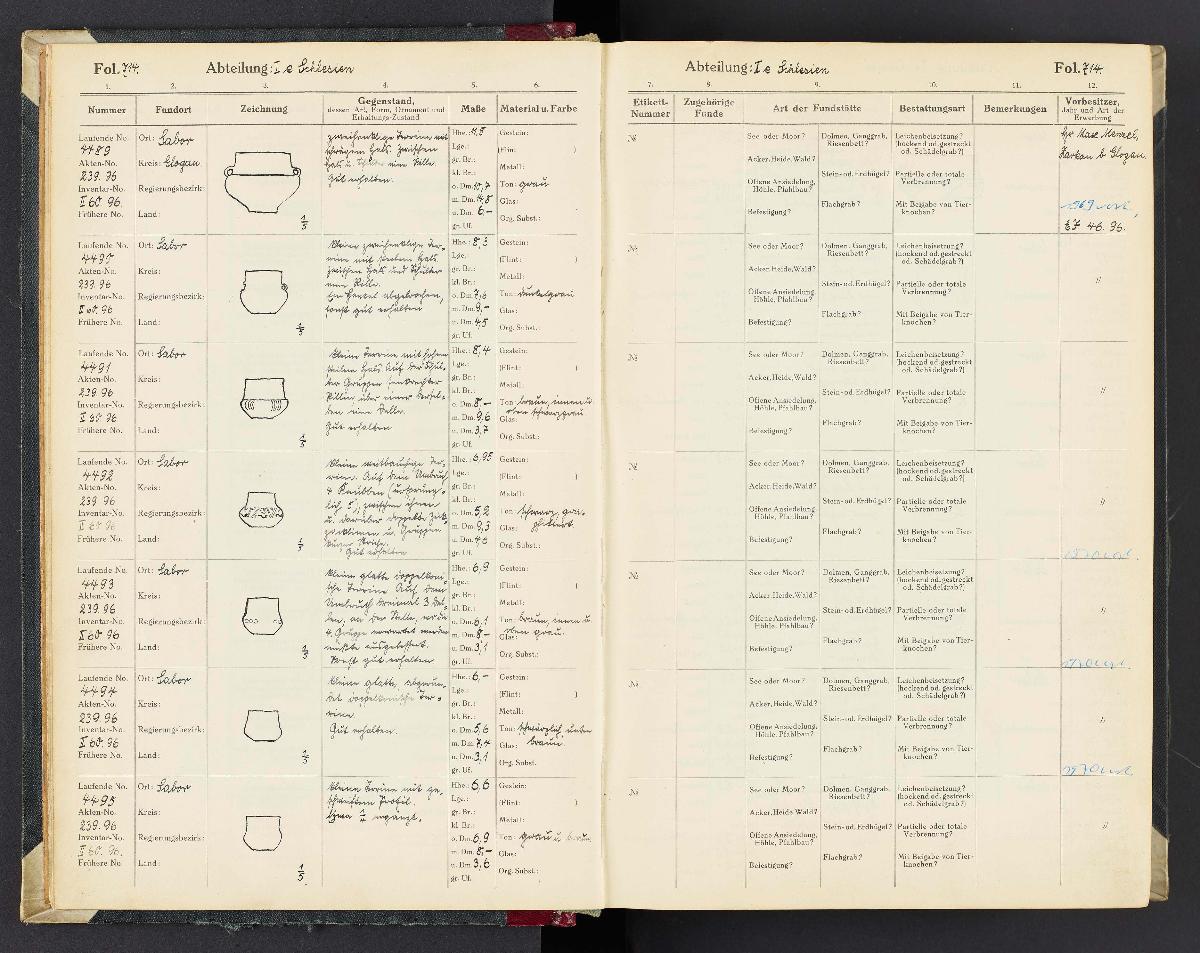 Fol. 714.
Abteilung: I e Schlesien
1. 2. 3. 4. 5. 6.
Nummer Fundort Zeichnung Gegenstand, dessen Art, Form, Ornament und Erhaltungs-Zustand Maße Material u. Farbe
Laufende No. 4489
Akten-No. 239. 96
Inventar-No. I 60. 96.
Frühere No.
Ort: Sabor
Kreis: Glogau
Regierungsbezirk:
Land:
1/5
zweihenklige Terrine mit
schrägem Hals. Zwischen
Hals u. eine Delle.
Gut erhalten.
Hhe.: 11,8
Lge.:
gr. Br.:
kl. Br.:
o. Dm. 10,7
m. Dm. 14,8
u. Dm. 6,–
gr. Uf.
Gestein:
(Flint: )
Metall:
Ton: grau
Glas:
Org. Subst.:
Laufende No. 4490
Akten-No. 239. 96
Inventar-No. I 60. 96
Frühere No.
Ort: Sabor
Kreis:
Regierungsbezirk:
Land:
1/5
Kleine zweihenklige Ter-
rine mit steilem Hals
zwischen Hals und Schulter
eine Delle.
Ein Henkel abgebrochen,
sonst gut erhalten
Hhe.: 8,3
Lge.:
gr. Br.:
kl. Br.:
o. Dm. 7,6
m. Dm. 9,–
u. Dm. 4,5
gr. Uf.
Gestein:
(Flint: )
Metall:
Ton: dunkelgrau
Glas:
Org. Subst.:
Laufende No. 4491
Akten-No. 239. 96
Inventar-No. I 60. 96
Frühere No.
Ort: Sabor
Kreis:
Regierungsbezirk:
Land:
1/5
Kleine Terrine mit hohem
steilem Hals Auf der Schul-
ter Gruppen senkrechter
Rillen über einer
eine Delle.
Gut erhalten
Hhe.: 8,4
Lge.:
gr. Br.:
kl. Br.:
o. Dm. 8,–
m. Dm. 9,6
u. Dm. 3,7
gr. Uf.
Gestein:
(Flint: )
Metall:
Ton: braun, innen u
oben schwarzgrau
Glas:
Org. Subst.:
Laufende No. 4492
Akten-No. 239. 96
Inventar-No. I 60. 96
Frühere No.
Ort: Sabor
Kreis:
Regierungsbezirk:
Land:
1/5
Kleine weitbauchige Ter-
rine. Auf dem Umbruch
4 Knubben (ursprüng-
lich 5), zwischen ihnen
u. darüber doppelte Zick-
zacklinien u. Gruppen
kurzer Striche.
Gut erhalten
Hhe.: 6,95
Lge.:
gr. Br.:
kl. Br.:
o. Dm. 5,2
m. Dm. 9,3
u. Dm. 4,6
gr. Uf.
Gestein:
(Flint: )
Metall:
Ton: schwarz, gra-
phitiert
Glas:
Org. Subst.:
Laufende No. 4493
Akten-No. 239. 96
Inventar-No. I 60. 96
Frühere No.
Ort: Sabor
Kreis:
Regierungsbezirk:
Land:
1/5
Kleine glatte doppelkoni-
sche Terrine Auf dem
Umbruch dreimal 3 Del-
len, an der Stelle, wo die
4. Gruppe erwartet werden
müßte ausgeflickt.
Sonst gut erhalten
Hhe.: 6,9
Lge.:
gr. Br.:
kl. Br.:
o. Dm. 6,1
m. Dm. 8–
u. Dm. 3,1
gr. Uf.
Gestein:
(Flint: )
Metall:
Ton: braun, innen u
oben grau.
Glas:
Org. Subst.:
Laufende No. 4494
Akten-No. 239. 96
Inventar-No. I 60. 96
Frühere No.
Ort: Sabor
Kreis:
Regierungsbezirk:
Land:
1/5
Kleine glatte, abgerun-
det doppelkonische Ter-
rine.
Gut erhalten.
Hhe.: 6,–
Lge.:
gr. Br.:
kl. Br.:
o. Dm. 5,6
m. Dm. 7,4
u. Dm. 3,1
gr. Uf.
Gestein:
(Flint: )
Metall:
Ton: schwärzlich, unten
braun
Glas:
Org. Subst.
Laufende No. 4495
Akten-No. 239. 96
Inventar-No. I 60. 96.
Frühere No.
Ort: Sabor
Kreis:
Regierungsbezirk:
Land:
1/5
Kleine Terrine mit ge-
schweiftem Profil.
Etwa ergänzt.
Hhe.: 6,6
Lge.:
gr. Br.:
kl. Br.:
o. Dm. 6,9
m. Dm. 8,–
u. Dm. 3,6
gr. Uf.
Gestein:
(Flint: )
Metall:
Ton: grau u. braun
Glas:
Org. Subst.:
Abteilung: I e Schlesien
Fol. 714.
7. 8. 9. 10. 11. 12.
Etikett-Nummer Zugehörige Funde Art der Fundstätte Bestattungsart Bemerkungen Vorbesitzer, Jahr und Art der Erwerbung
№
See oder Moor?
Acker, Heide, Wald?
Offene Ansiedelung, Höhle, Pfahlbau?
Befestigung?
Dolmen, Ganggrab, Riesenbett?
Stein-od. Erdhügel?
Flachgrab?
Leichenbeisetzung? (hockend od. gestreckt od. Schädelgrab?)
Partielle oder totale Verbrennung?
Mit Beigabe von Tier-knochen?
Hr Max Menzel,
Karkau b Glogau.
1969 vorh.
E.J. 46. 96.
№
See oder Moor?
Acker, Heide, Wald?
Offene Ansiedelung, Höhle, Pfahlbau?
Befestigung?
Dolmen, Ganggrab, Riesenbett?
Stein-od. Erdhügel?
Flachgrab?
Leichenbeisetzung? (hockend od. gestreckt od. Schädelgrab?)
Partielle oder totale Verbrennung?
Mit Beigabe von Tier-knochen?
"
№
See oder Moor?
Acker, Heide, Wald?
Offene Ansiedelung, Höhle, Pfahlbau?
Befestigung?
Dolmen, Ganggrab, Riesenbett?
Stein-od. Erdhügel?
Flachgrab?
Leichenbeisetzung? (hockend od. gestreckt od. Schädelgrab?)
Partielle oder totale Verbrennung?
Mit Beigabe von Tier-knochen?
"
№
See oder Moor?
Acker, Heide, Wald?
Offene Ansiedelung, Höhle, Pfahlbau?
Befestigung?
Dolmen, Ganggrab, Riesenbett?
Stein-od. Erdhügel?
Flachgrab?
Leichenbeisetzung? (hockend od. gestreckt od. Schädelgrab?)
Partielle oder totale Verbrennung?
Mit Beigabe von Tier-knochen?
"
1970 vorh.
№
See oder Moor?
Acker, Heide, Wald?
Offene Ansiedelung, Höhle, Pfahlbau?
Befestigung?
Dolmen, Ganggrab, Riesenbett?
Stein-od. Erdhügel?
Flachgrab?
Leichenbeisetzung? (hockend od. gestreckt od. Schädelgrab?)
Partielle oder totale Verbrennung?
Mit Beigabe von Tier-knochen?
"
1970 vorh.
№
See oder Moor?
Acker, Heide, Wald?
Offene Ansiedelung, Höhle, Pfahlbau?
Befestigung?
Dolmen, Ganggrab, Riesenbett?
Stein-od. Erdhügel?
Flachgrab?
Leichenbeisetzung? (hockend od. gestreckt od. Schädelgrab?)
Partielle oder totale Verbrennung?
Mit Beigabe von Tier-knochen?
"
1970 vorh.
№
See oder Moor?
Acker, Heide Wald?
Offene Ansiedelung, Höhle, Pfahlbau?
Befestigung?
Dolmen, Ganggrab, Riesenbett?
Stein-od. Erdhügel?
Flachgrab?
Leichenbeisetzung? (hockend od. gestreckt od. Schädelgrab?)
Partielle oder totale Verbrennung?
Mit Beigabe von Tier-knochen?
"